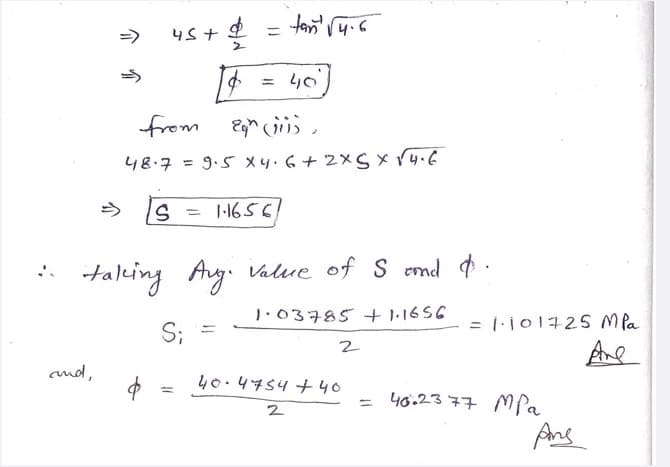 ⇒ 45 + ϕ/2 = tan⁻¹ √4.6
⇒ ϕ = 40°
from eqn (iii),
48.7 = 9.5 × 4.6 + 2 × S × √4.6
⇒ S = 1.1656
∴ taking Avg. Value of S and ϕ.
Si = (1.03785 + 1.1656)/2 = 1.101725 MPa
Ans
and, ϕ = (40.4754 + 40)/2 = 40.2377 MPa
Ans